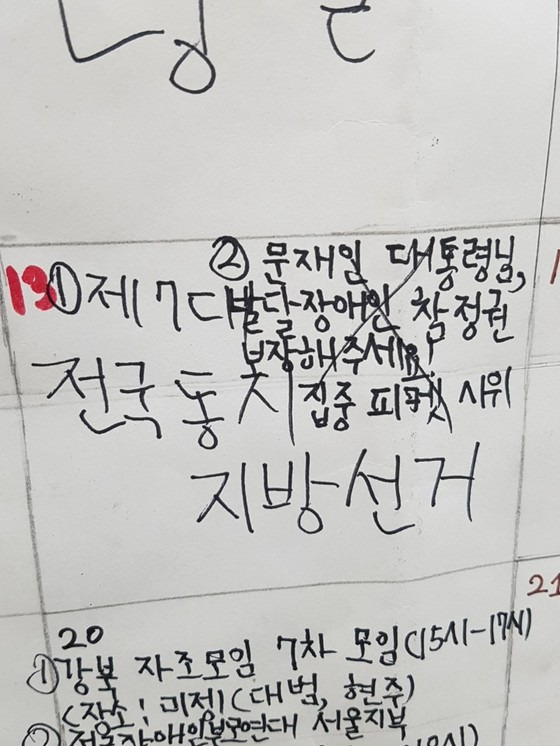 13
① 제7대
전국 동시
지방선거
② 문재인 대통령님,
발달장애인 참정권
보장해주세요!
집중 피켓 시위
20
① 강북 자조모임 7차 모임(15시-17시)
(장소: 미정)(대범, 현주)
② 전국장애인부모연대 서울지부
21